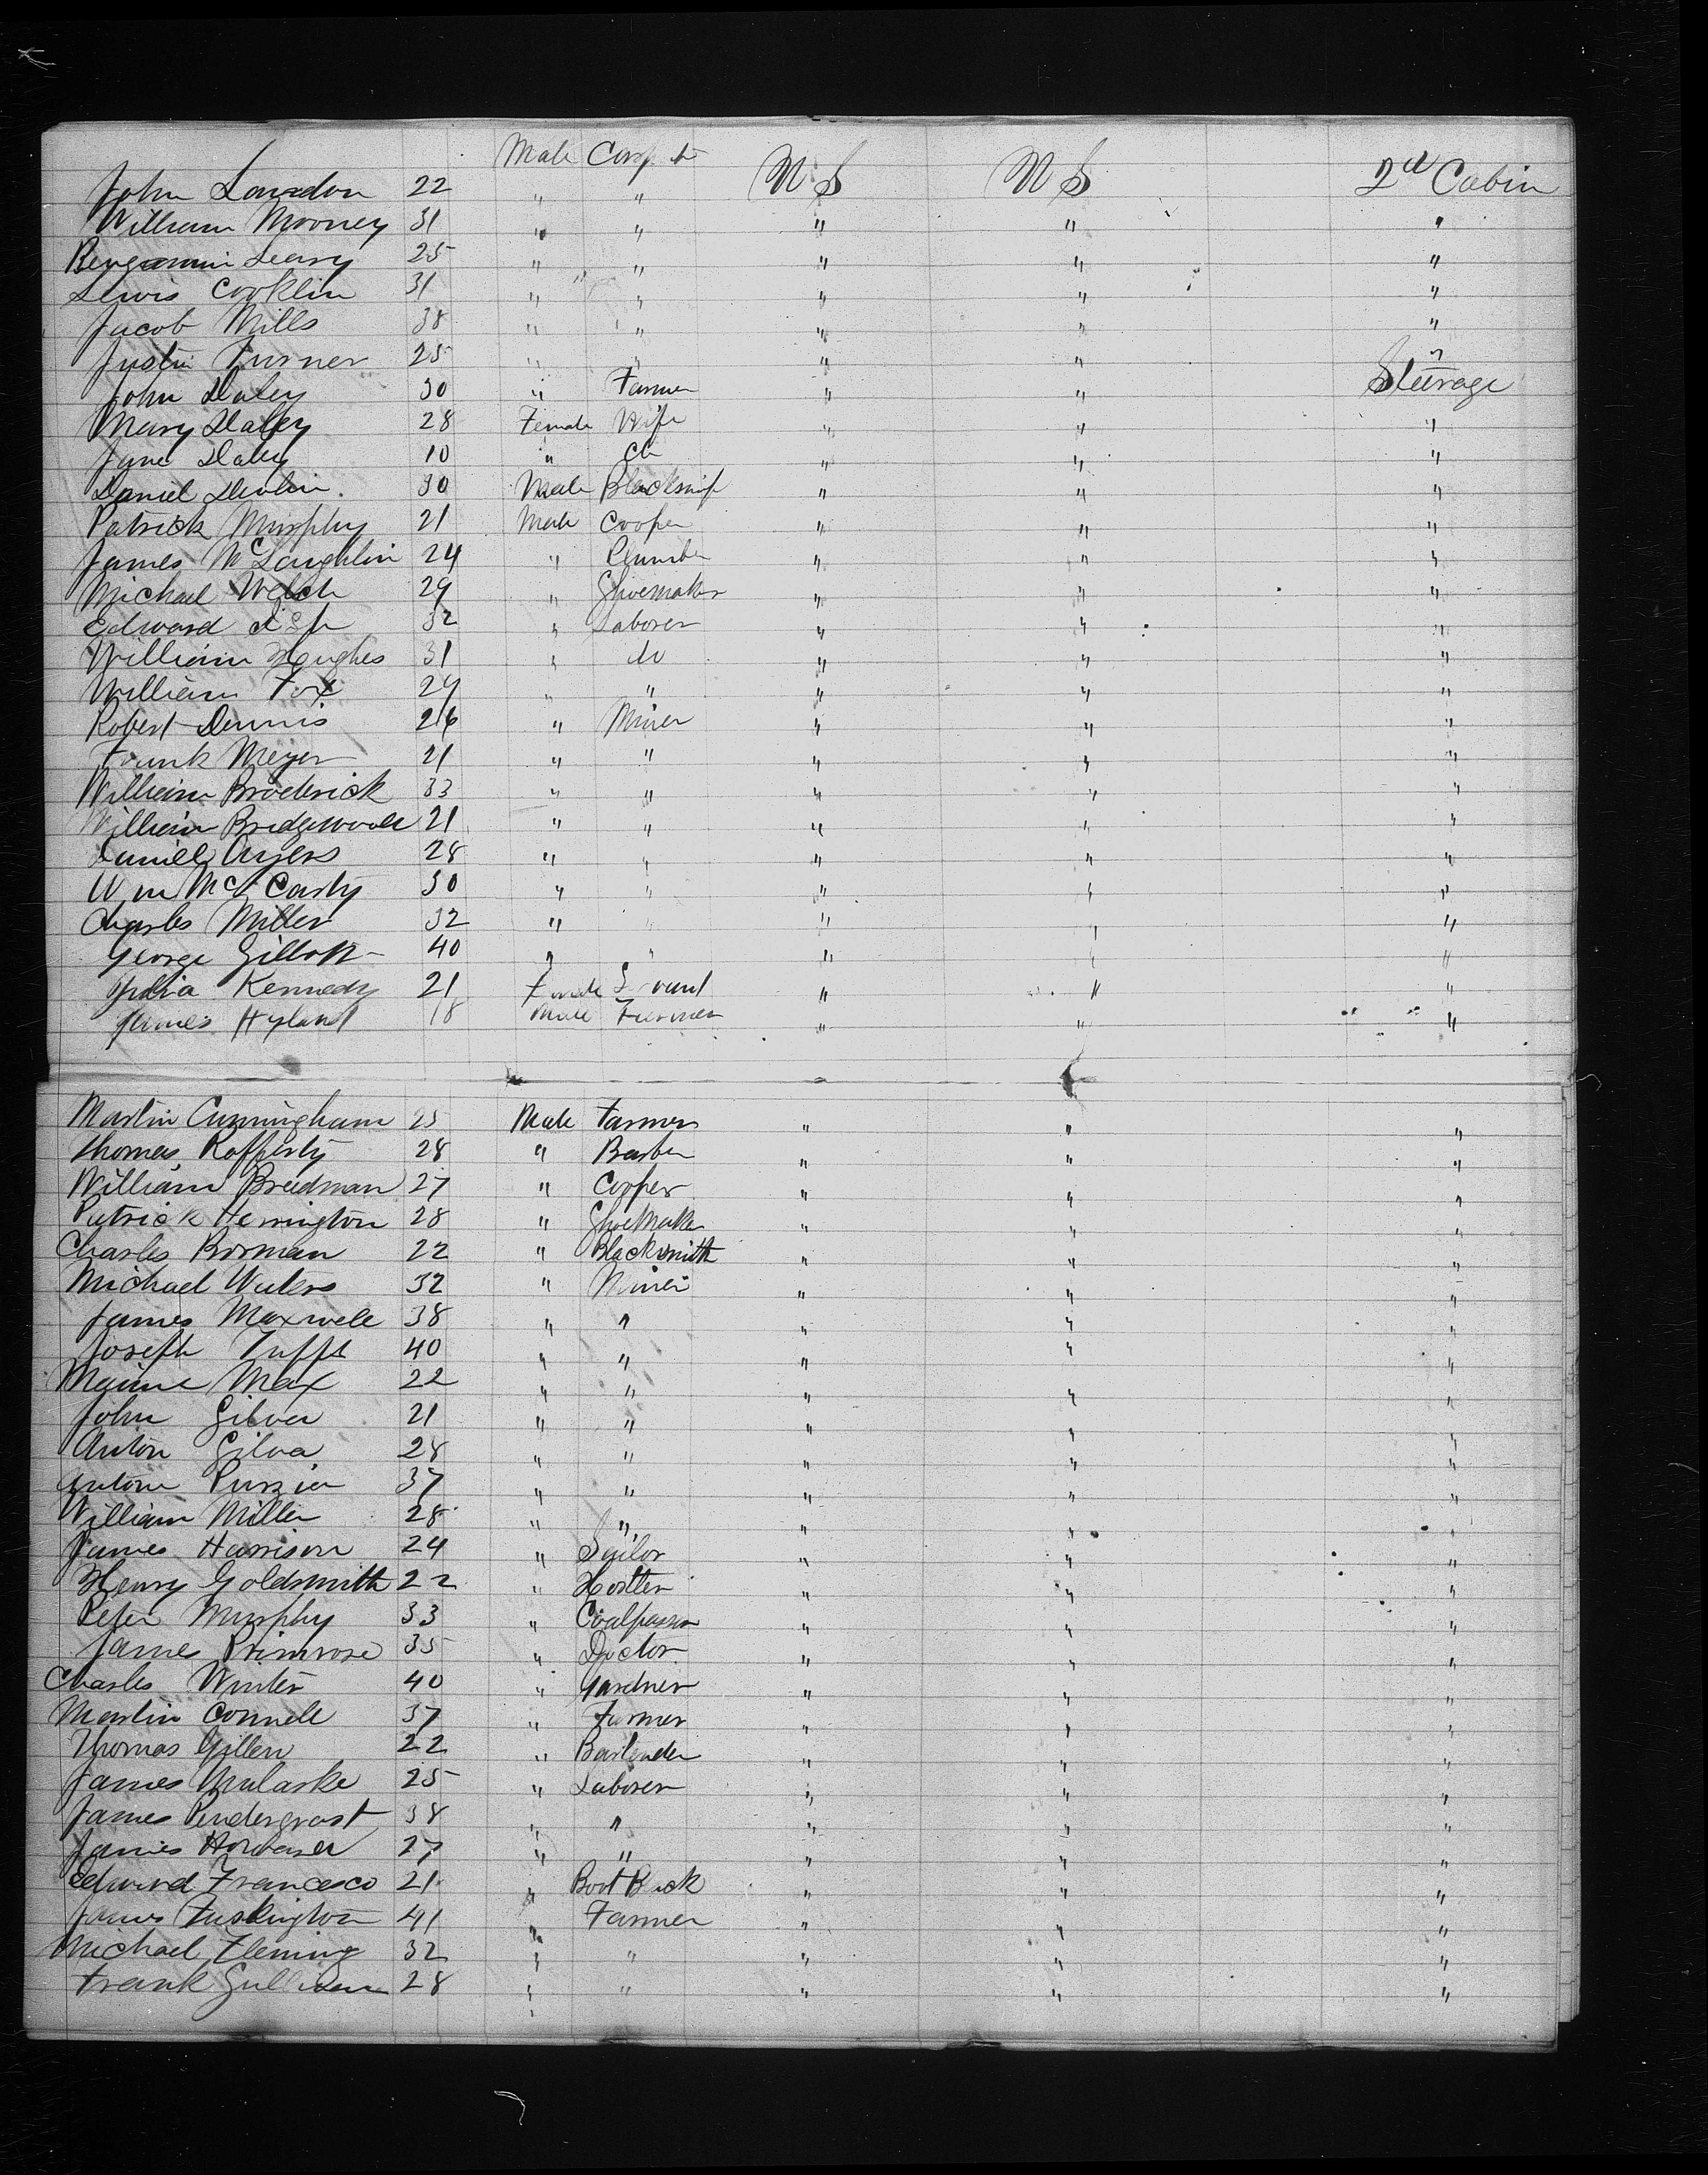 Male Carpt
John Langdon 22 " " U S U S 2d Cabin
William Mooney 31 " " " " "
Benjamin Leary 25 " " " " "
Lewis Cooklin 31 " " " " "
Jacob Mills 38 " " " " "
Justin Turner 25 " " " " "
John Daley 30 " Farmer " " Steerage
Mary Daley 28 Female Wife " " "
Jane Daley 10 " Ch " " "
Daniel Devlin 30 Male " " "
Patrick Murphy 21 Male Cooper " " "
James McLaughlin 24 " Plumber " " "
Michael Welch 29 " Shoemaker " " "
Edward 32 " Laborer " " "
William Hughes 31 " do " " "
William Fox 29 " " " " "
Robert Dennis 26 " Miner " " "
Frank Meyer 21 " " " " "
William Broderick 33 " " " " "
William Bridgewood 21 " " " " "
Daniel Ayers 28 " " " " "
Wm McCarty 30 " " " " "
Charles Miller 32 " " " " "
George 40 " " " " "
Julia Kennedy 21 Female " " "
James Hyland 18 Male Farmer " " "
Martin Cunningham 25 Male Farmer " " "
Thomas Rafferty 28 " Barber " " "
William Breedman 27 " Cooper " " "
Patrick Herrington 28 " Shoe Maker " " "
Charles Borman 22 " Blacksmith " " "
Michael Waters 32 " Miner " " "
James Maxwell 38 " " " " "
Joseph Tufts 40 " " " " "
Max 22 " " " " "
John Silva 21 " " " " "
Anton Silva 28 " " " " "
Antone 37 " " " " "
William Miller 28 " " " " "
James Harrison 24 " Sailor " " "
Henry Goldsmith 22 " Hostler " " "
Peter Murphy 33 " Coalpasser " " "
James Primrose 35 " Doctor " " "
Charles Winter 40 " Gardner " " "
Martin Connell 37 " Farmer " " "
Thomas Gillen 22 " Bartender " " "
James 25 " Laborer " " "
James Pendergrast 38 " " " " "
James 27 " " " " "
Edward Francesco 21 " Boot Black " " "
James 41 " Farmer " " "
Michael Fleming 32 " " " " "
Frank Sullivan 28 " " " " "
"